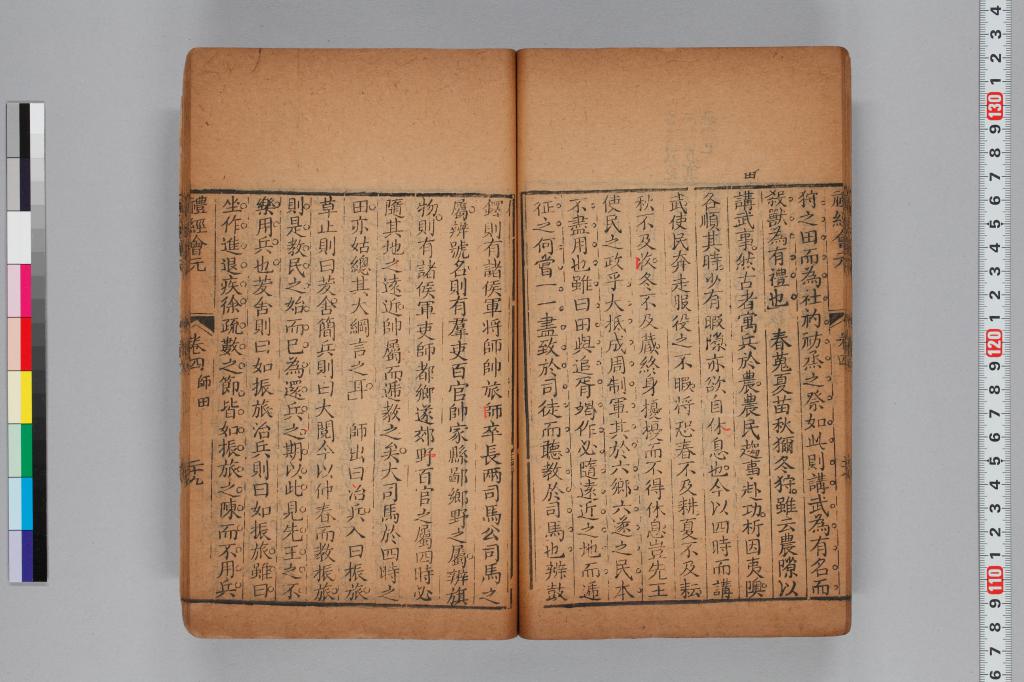 禮經會元
狩之田而為社礿祊烝之祭如此則講武為有名而
殺獸為有禮也　春蒐夏苗秋獮冬狩雖云農隙以
講武事然古者寓兵於農農民趨事赴功析因夷隩
各順其時少有暇隙亦欲自休息也今以四時而講
武使民奔走服役之不暇將恐春不及耕夏不及耘
秋不及冬不及藏終身擾擾而不得休息豈先王
使民之政乎大抵成周制軍其於六鄉六遂之民本
不盡用也雖曰田與追胥竭作必隨遠近之地而遞
征之何嘗一一盡致於司徒而聽教於司馬也辨鼓
鐸則有諸侯軍將師帥旅師卒長兩司馬公司馬之
屬辨號名則有羣吏百官帥家縣鄙鄉野之屬辨旗
物則有諸侯軍吏師都鄉遂郊野百官之屬四時必
隨其地之遠近帥屬而遞教之矣大司馬於四時之
田亦姑總其大綱言之耳　師出曰治兵入曰振旅
草止則曰茇舍簡兵則曰大閱今以仲春而教振旅
則是教民之始而已為還兵之期以此見先王之不
樂用兵也茇舍則曰如振旅治兵則曰如振旅雖曰
坐作進退疾徐疏數之節皆如振旅之陳而不用兵
禮經會元
卷四 師田